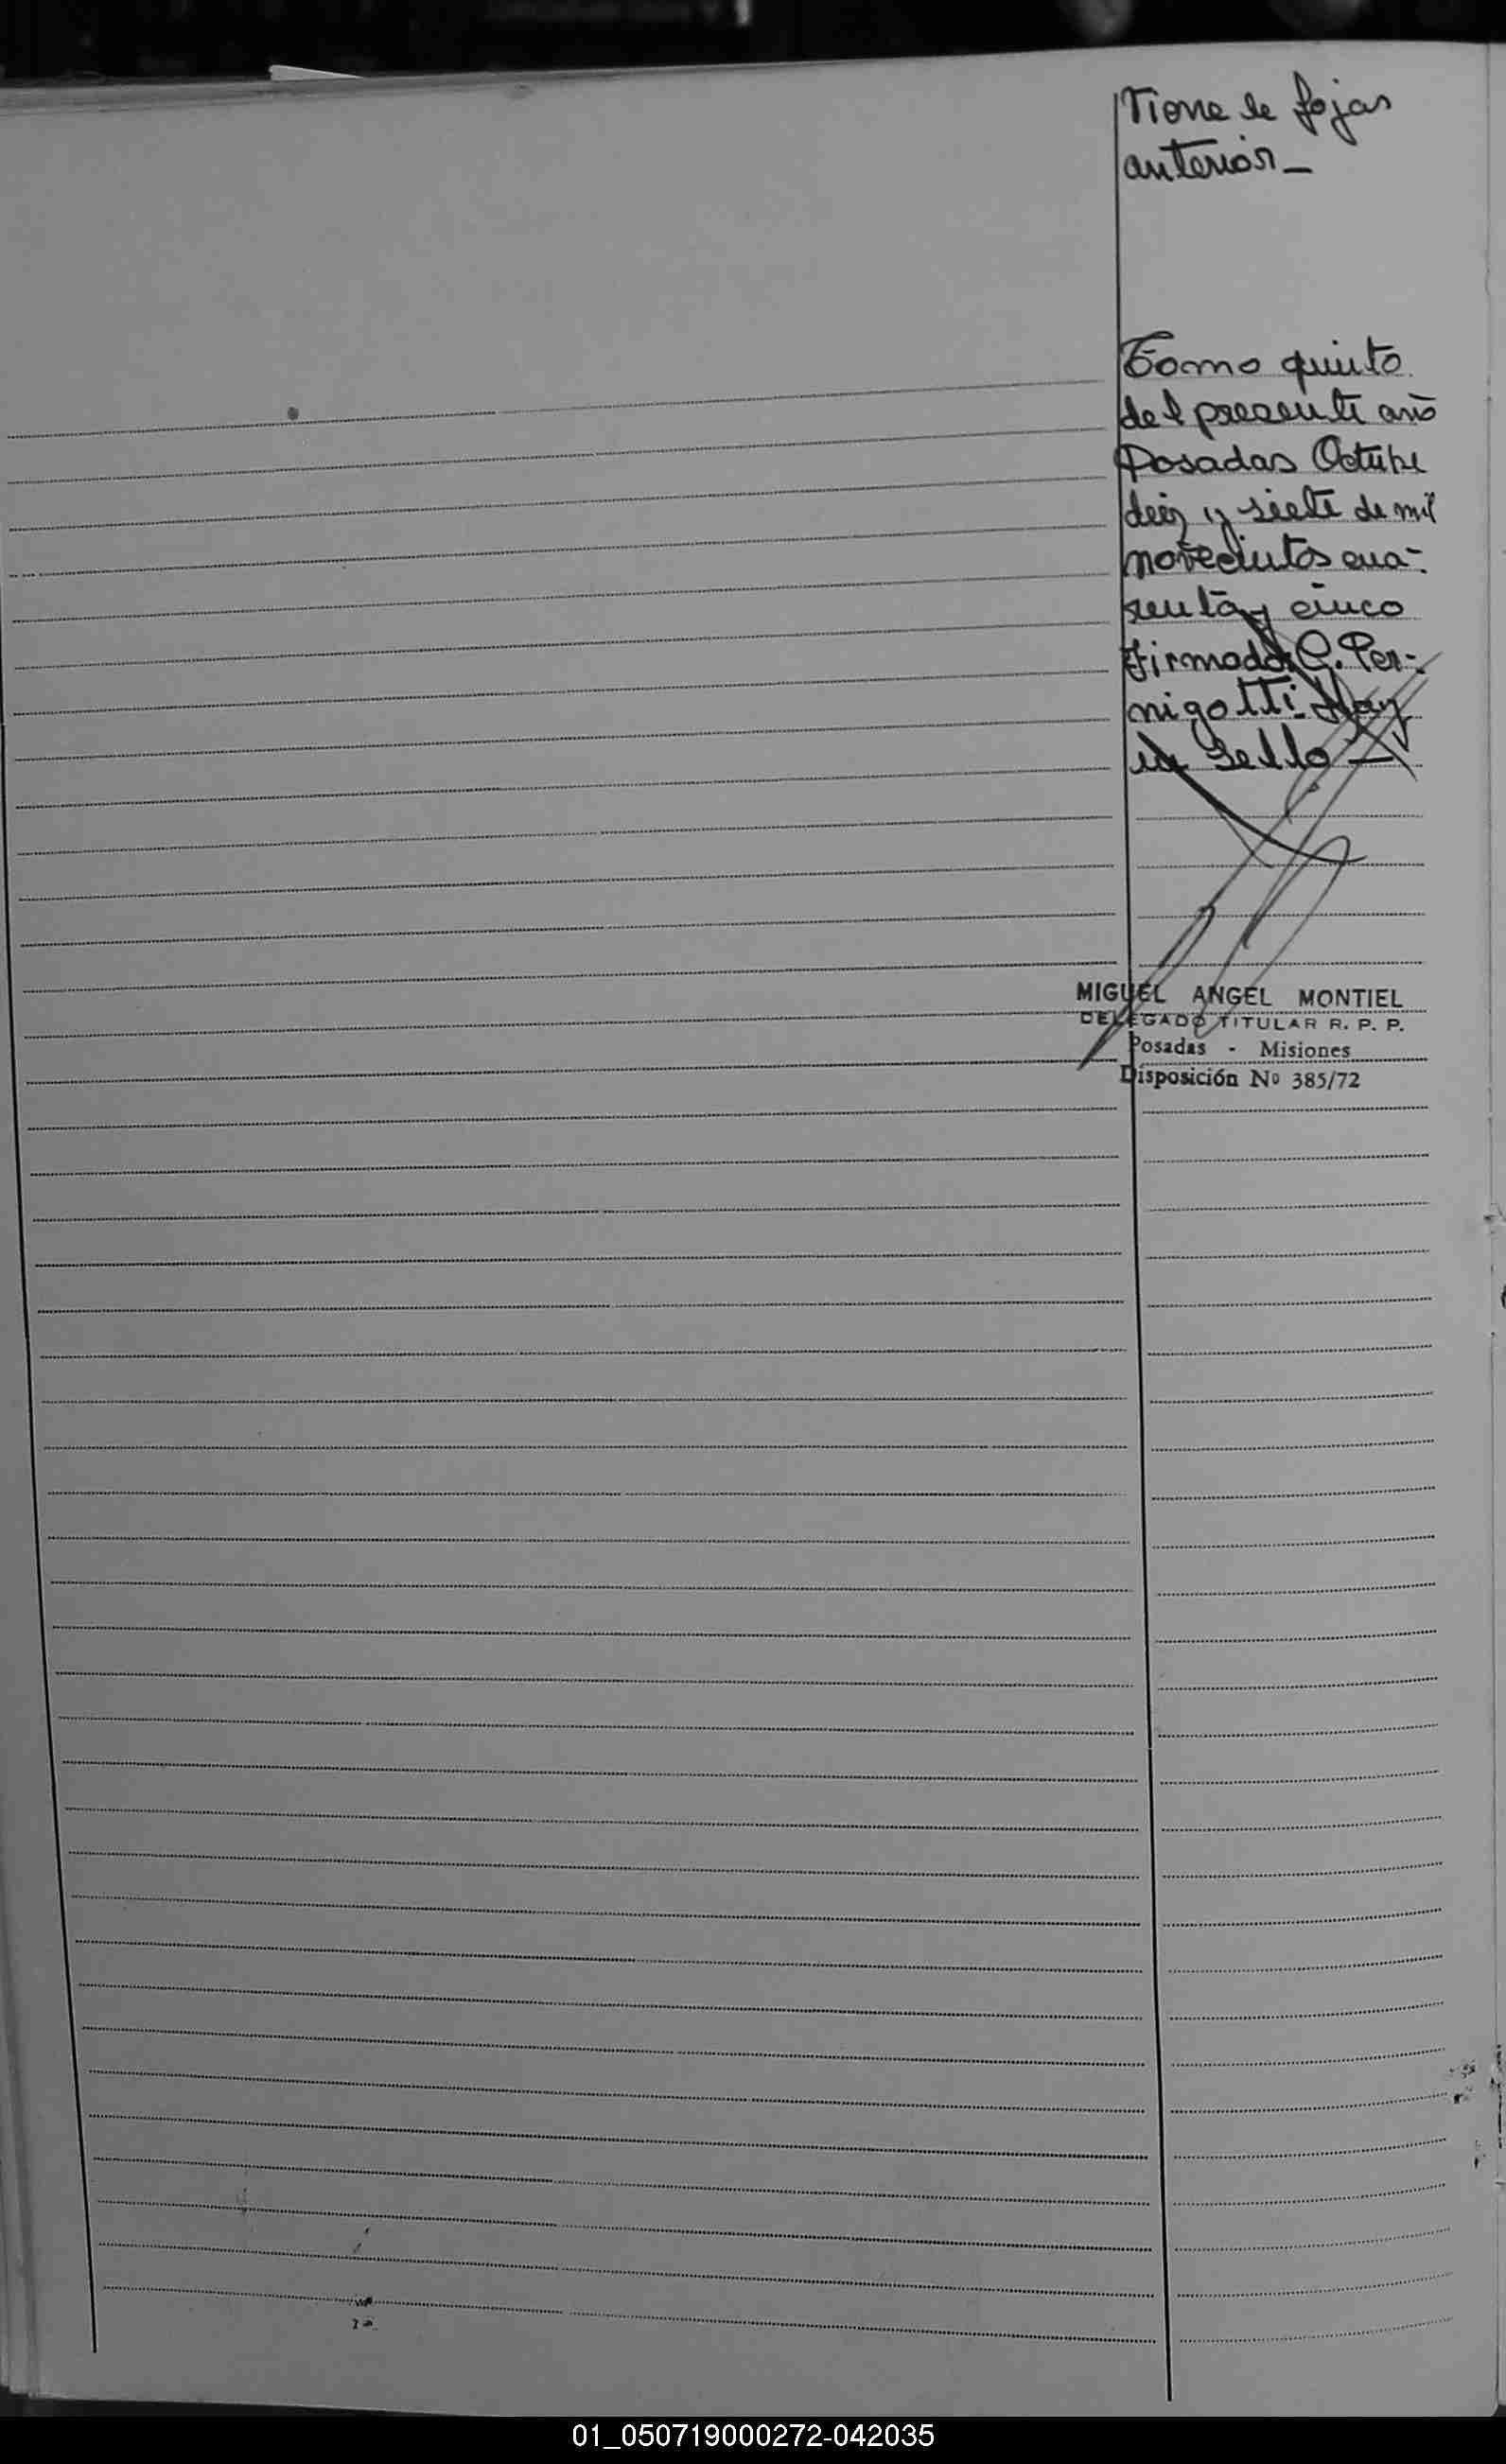 Viene de fojas
anterior_
Tomo quinto
del presente año
Posadas Octubre
diez y siete de mil
novecientos cua-
renta y cinco
Firmado: G. Per-
nigotti. Hay
un Sello_
MIGUEL ANGEL MONTIEL
DELEGADO TITULAR R. P. P.
Posadas - Misiones
Disposición Nº 385/72
01_050719000272-042035